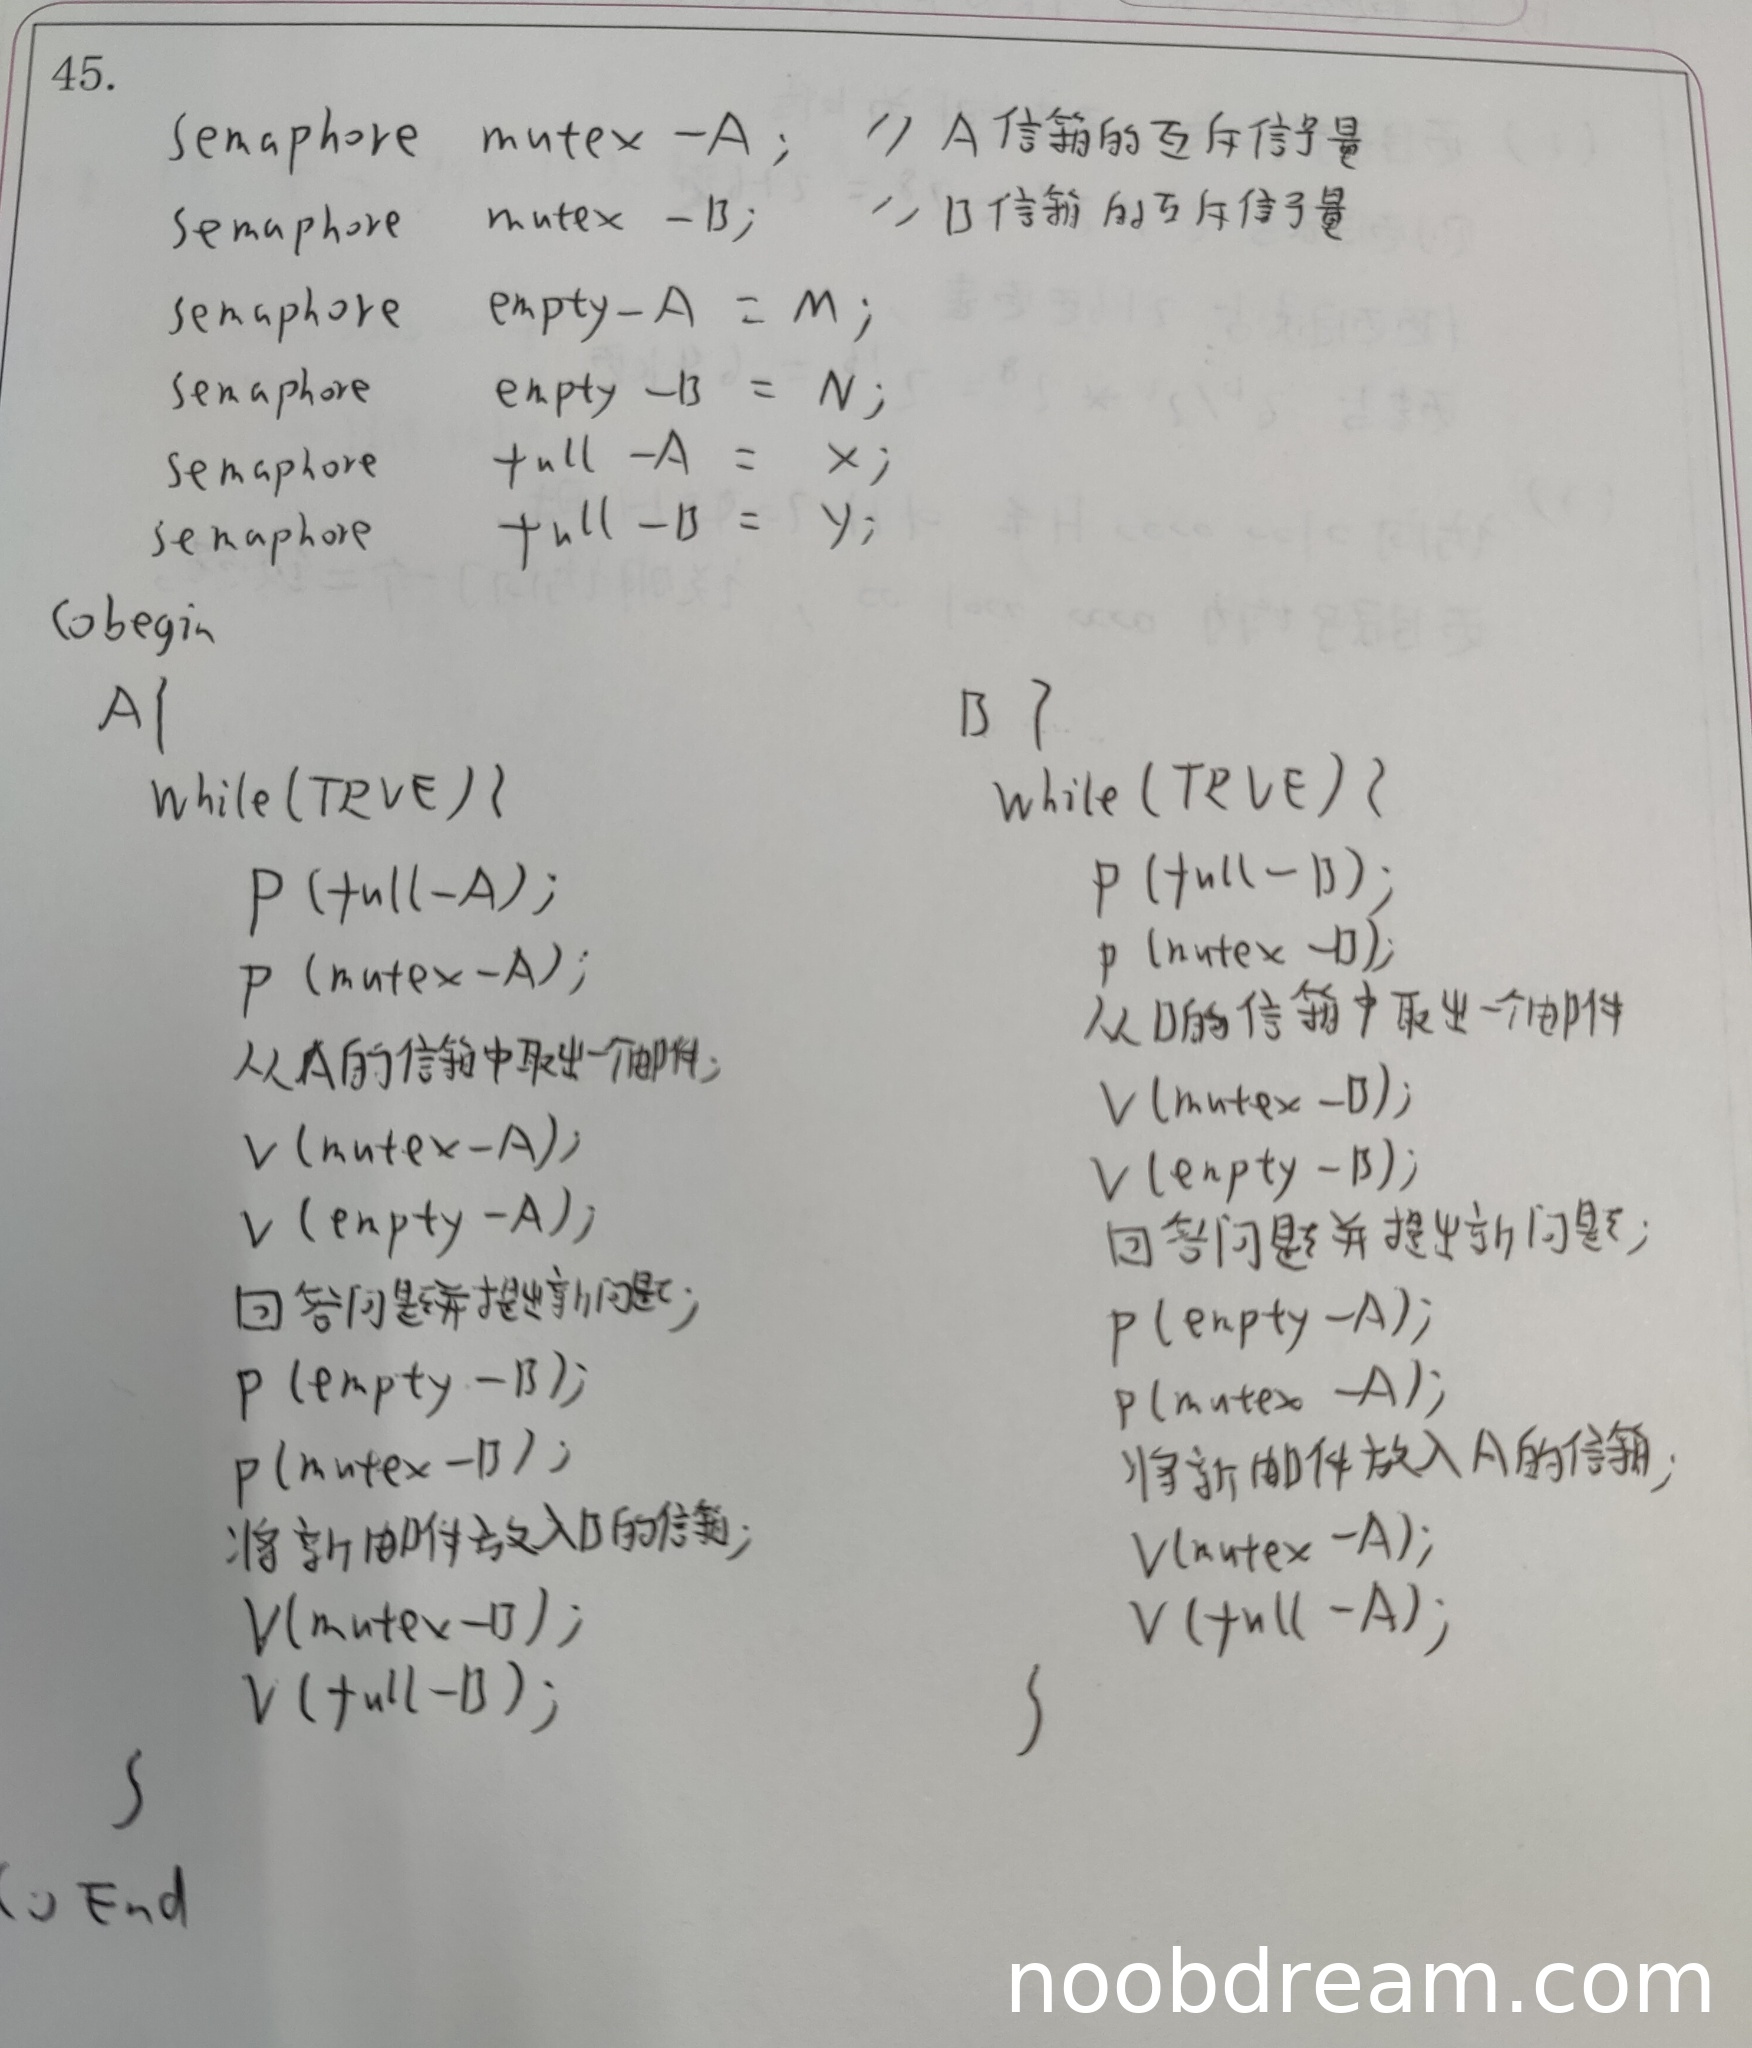 45.
semaphore mutex-A; // A信箱的互斥信号量
semaphore mutex-B; // B信箱的互斥信号量
semaphore empty-A = M;
semaphore empty-B = N;
semaphore full-A = x;
semaphore full-B = y;
Cobegin
A{
while(TRUE){
P(full-A);
P(mutex-A);
从A的信箱中取出一个邮件;
V(mutex-A);
V(empty-A);
回答问题并提出新问题;
P(empty-B);
P(mutex-B);
将新邮件放入B的信箱;
V(mutex-B);
V(full-B);
}
B{
while(TRUE){
P(full-B);
P(mutex-B);
从B的信箱中取出一个邮件
V(mutex-B);
V(empty-B);
回答问题并提出新问题;
P(empty-A);
P(mutex-A);
将新邮件放入A的信箱;
V(mutex-A);
V(full-A);
}
CoEnd
noobdream.com